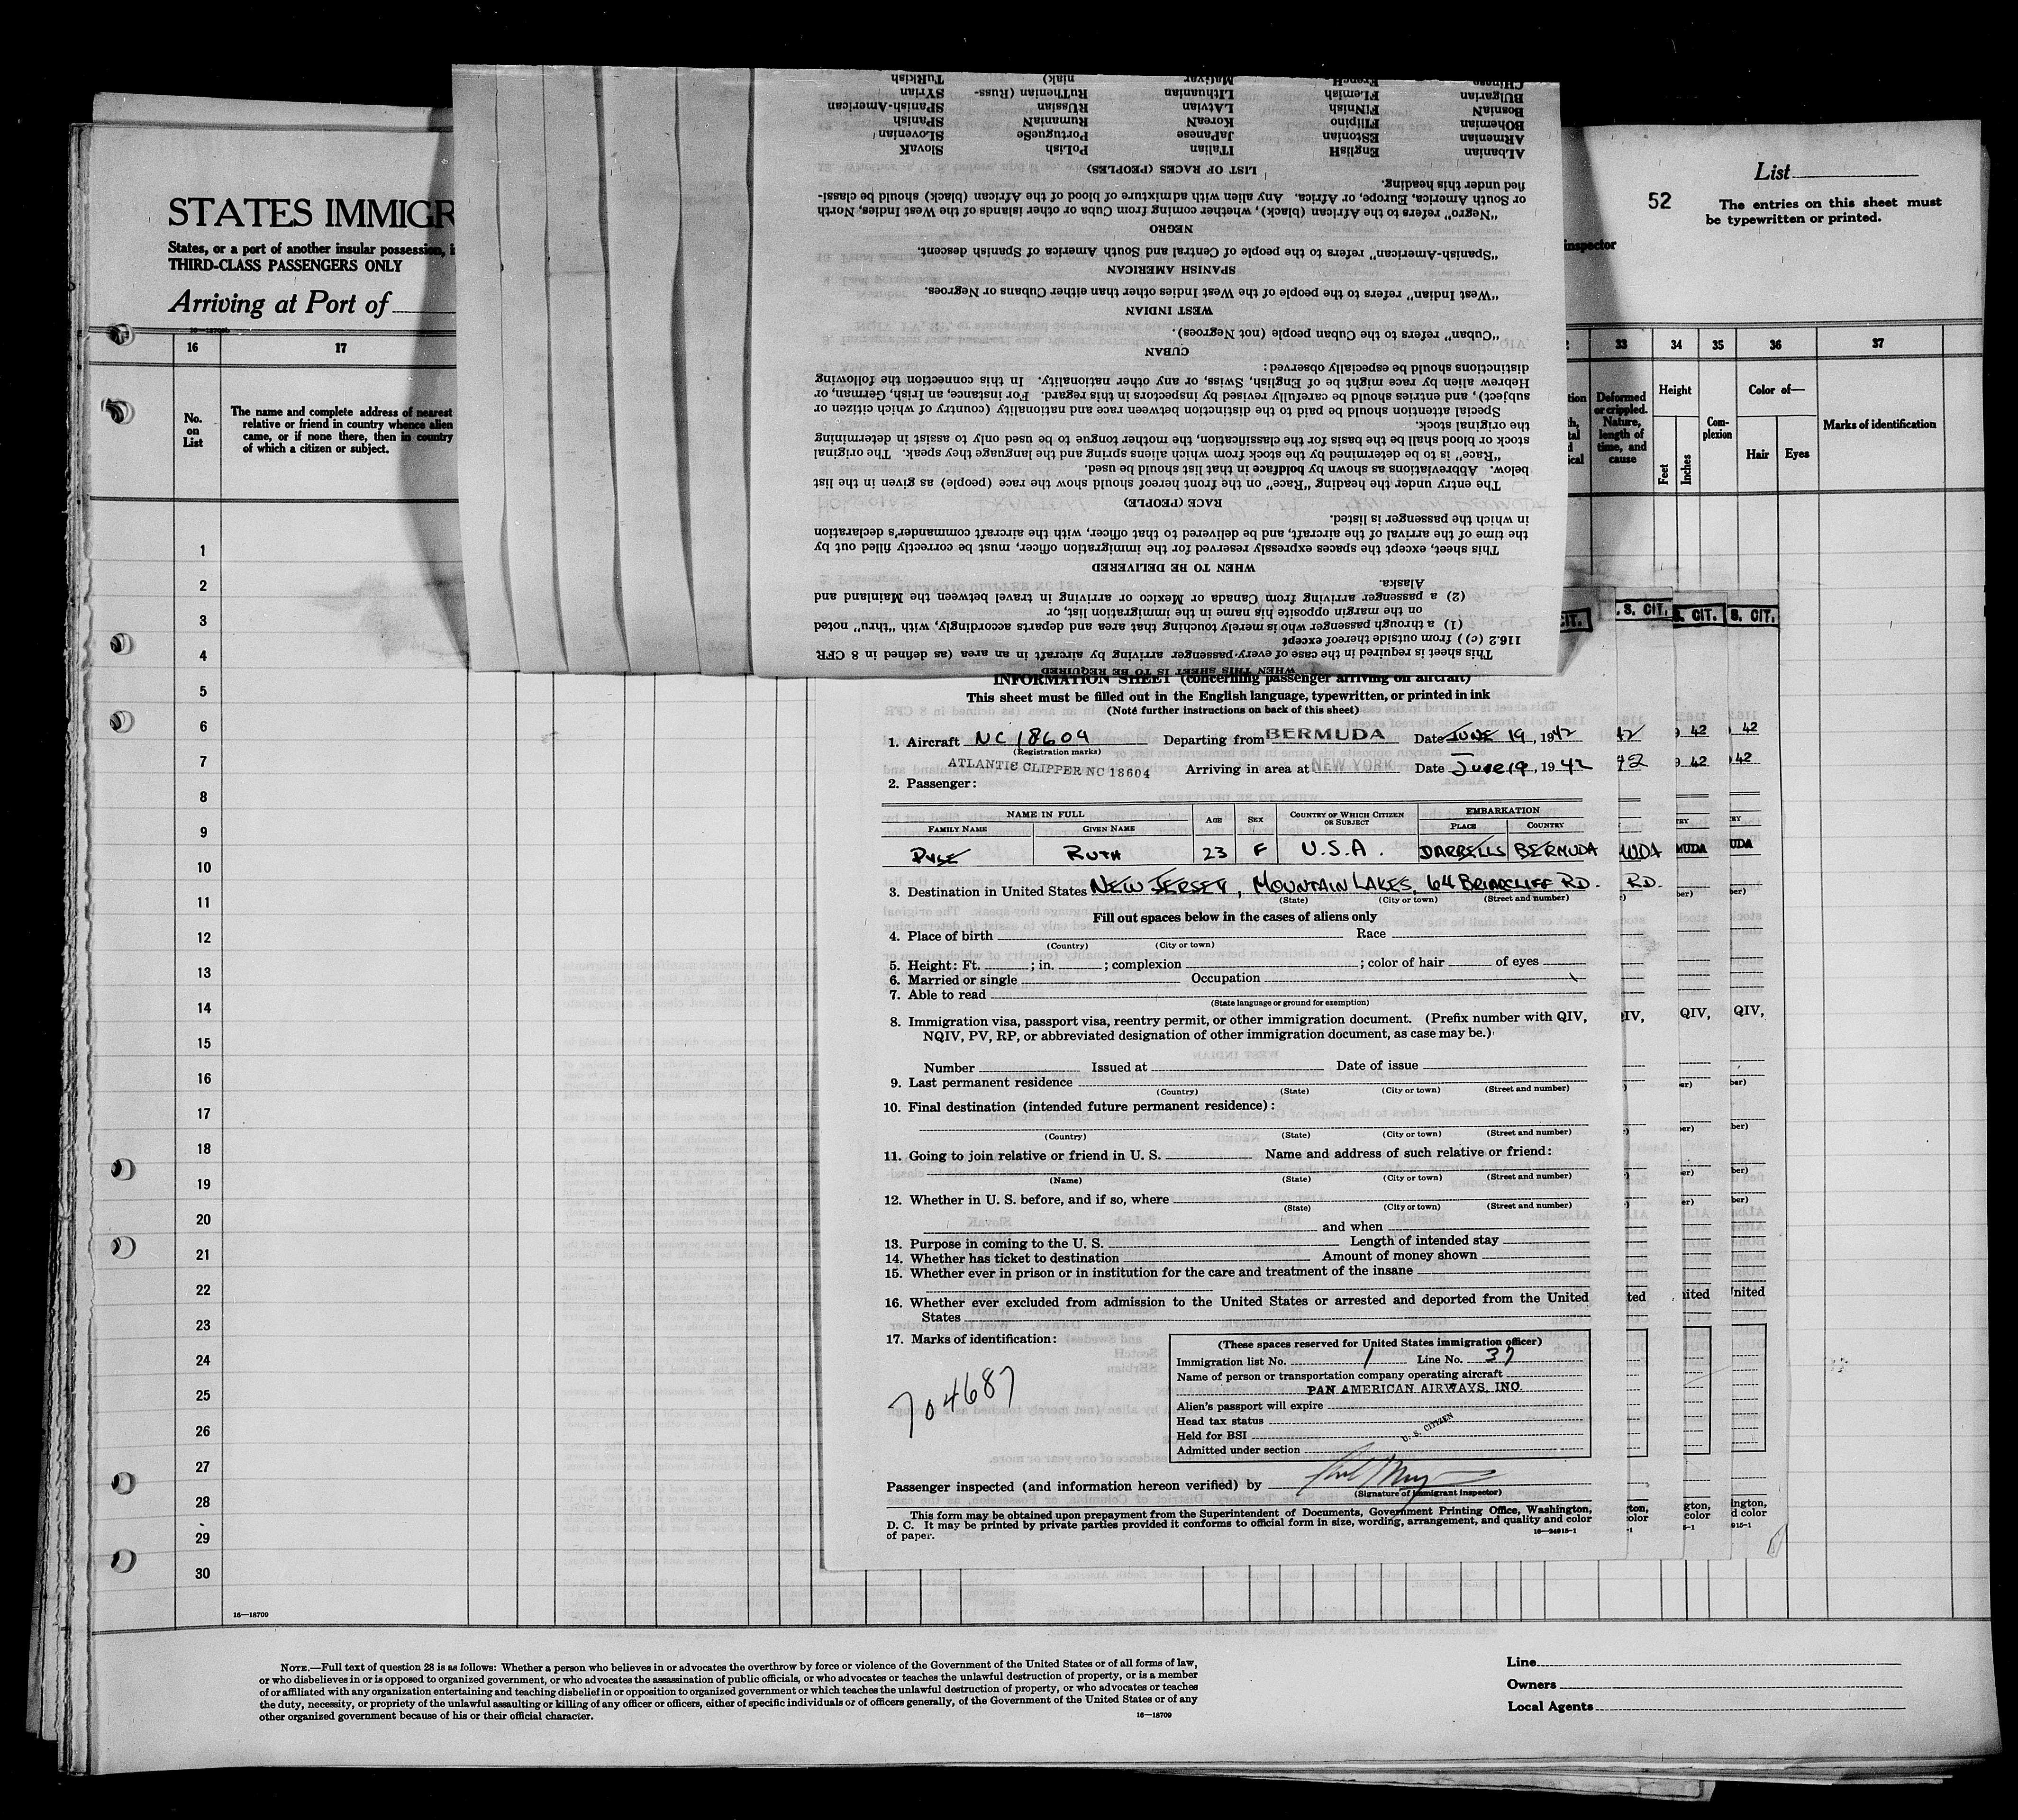 STATES IMMIGR
States, or a port of another insular possession, i
THIRD-CLASS PASSENGERS ONLY
Arriving at Port of
List
52
The entries on this sheet must
be typewritten or printed.
inspector
16 17 33 34 35 36 37
No.
on
List
The name and complete address of nearest
relative or friend in country whence alien
came, or if none there, then in country
of which a citizen or subject.
Deformed
or crippled.
Nature,
length of
time, and
cause
Height
Feet
Inches
Com-
plexion
Color of—
Hair Eyes
Marks of identification
1
2
3
4
5
6
7
8
9
10
11
12
13
14
15
16
17
18
19
20
21
22
23
24
25
26
27
28
29
30
16—18709
WHEN THIS SHEET IS TO BE REQUIRED
This sheet is required in the case of every passenger arriving by aircraft in an area (as defined in 8 CFR
116.2 (c) ) from outside thereof except
(1) a through passenger who is merely touching that area and departs accordingly, with "thru" noted
on the margin opposite his name in the immigration list, or
(2) a passenger arriving from Canada or Mexico or arriving in travel between the Mainland and
Alaska.
WHEN TO BE DELIVERED
This sheet, except the spaces expressly reserved for the immigration officer, must be correctly filled out by
the time of the arrival of the aircraft, and be delivered to that officer, with the aircraft commander's declaration
in which the passenger is listed.
RACE (PEOPLE)
The entry under the heading "Race" on the front hereof should show the race (people) as given in the list
below. Abbreviations as shown by boldface in that list should be used.
"Race" is to be determined by the stock from which aliens spring and the language they speak. The original
stock or blood shall be the basis for the classification, the mother tongue to be used only to assist in determining
the original stock.
Special attention should be paid to the distinction between race and nationality (country of which citizen or
subject), and entries should be carefully revised by inspectors in this regard. For instance, an Irish, German, or
Hebrew alien by race might be of English, Swiss, or any other nationality. In this connection the following
distinctions should be especially observed:
CUBAN
"Cuban" refers to the Cuban people (not Negroes).
WEST INDIAN
"West Indian" refers to the people of the West Indies other than either Cubans or Negroes.
SPANISH AMERICAN
"Spanish-American" refers to the people of Central and South America of Spanish descent.
NEGRO
"Negro" refers to the African (black), whether coming from Cuba or other islands of the West Indies, North
or South America, Europe, or Africa. Any alien with admixture of blood of the African (black) should be classi-
fied under this heading.
LIST OF RACES (PEOPLES)
ALbanian EnglisH ITalian PoLish SlovaK
ARmenian EStonian JaPanese PortugueSe SLOvenian
BOHemian FIlipino KoreaN RumaniaN SPanish
BosniaN FiNNish LAtvian RUSsian SPAnish-American
BUlgarian FLemish LIthuanian RuThenian (Russ- SYrian
FrencH niak) TuRkish
INFORMATION SHEET (concerning passenger arriving on aircraft)
This sheet must be filled out in the English language, typewritten, or printed in ink
(Note further instructions on back of this sheet)
1. Aircraft NC 18604 Departing from BERMUDA Date JUNE 19, 1942
(Registration marks)
ATLANTIC CLIPPER NC 18604 Arriving in area at NEW YORK Date June 19, 1942
2. Passenger:
NAME IN FULL AGE SEX COUNTRY OF WHICH CITIZEN OR SUBJECT EMBARKATION
FAMILY NAME GIVEN NAME PLACE COUNTRY
PYLE RUTH 23 F U.S.A. DARRELLS BERMUDA
3. Destination in United States NEW JERSEY, MOUNTAIN LAKES, 64 BRIARCLIFF RD.
(State) (City or town) (Street and number)
Fill out spaces below in the cases of aliens only
4. Place of birth Race
(Country) (City or town)
5. Height: Ft. ; in. ; complexion ; color of hair of eyes
6. Married or single Occupation
7. Able to read
(State language or ground for exemption)
8. Immigration visa, passport visa, reentry permit, or other immigration document. (Prefix number with QIV,
NQIV, PV, RP, or abbreviated designation of other immigration document, as case may be.)
Number Issued at Date of issue
9. Last permanent residence
(Country) (State) (City or town) (Street and number)
10. Final destination (intended future permanent residence):
(Country) (State) (City or town) (Street and number)
11. Going to join relative or friend in U. S. Name and address of such relative or friend:
(Name) (State) (City or town) (Street and number)
12. Whether in U. S. before, and if so, where
(State) (City or town) (Street and number)
and when
13. Purpose in coming to the U. S. Length of intended stay
14. Whether has ticket to destination Amount of money shown
15. Whether ever in prison or in institution for the care and treatment of the insane
16. Whether ever excluded from admission to the United States or arrested and deported from the United
States
17. Marks of identification:
704687
(These spaces reserved for United States immigration officer)
Immigration list No. 1 Line No. 37
Name of person or transportation company operating aircraft
PAN AMERICAN AIRWAYS, INC.
Alien's passport will expire
Head tax status
Held for BSI U. S. CITIZEN
Admitted under section
Passenger inspected (and information hereon verified) by
(Signature of immigrant inspector)
This form may be obtained upon prepayment from the Superintendent of Documents, Government Printing Office, Washington,
D. C. It may be printed by private parties provided it conforms to official form in size, wording, arrangement, and quality and color
of paper.
16—24915-1
NOTE.—Full text of question 28 is as follows: Whether a person who believes in or advocates the overthrow by force or violence of the Government of the United States or of all forms of law,
or who disbelieves in or is opposed to organized government, or who advocates the assassination of public officials, or who advocates or teaches the unlawful destruction of property, or is a member
of or affiliated with any organization entertaining and teaching disbelief in or opposition to organized government or which teaches the unlawful destruction of property, or who advocates or teaches
the duty, necessity, or propriety of the unlawful assaulting or killing of any officer or officers, either of specific individuals or of officers generally, of the Government of the United States or of any
other organized government because of his or their official character.
16—18709
Line
Owners
Local Agents